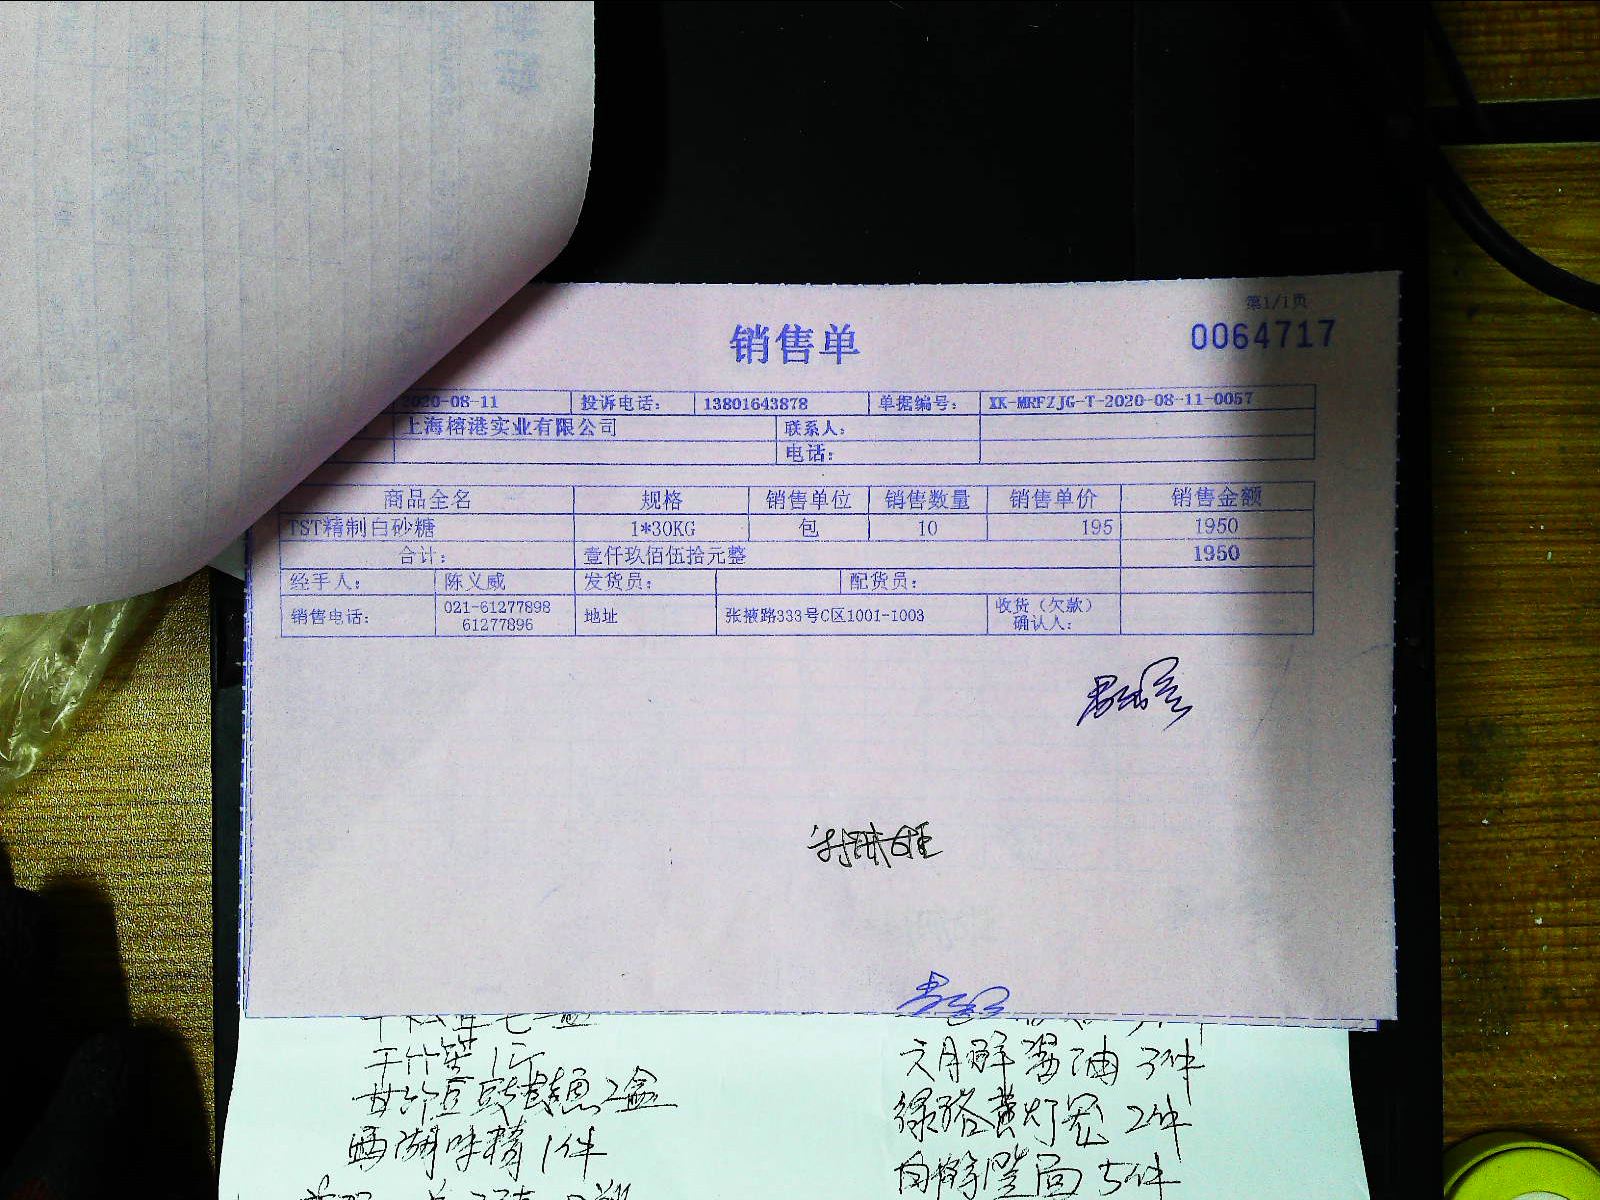 第1/1页
销售单
0064717
2020-08-11 投诉电话: 13801643878 单据编号: XK-MRFZJG-T-2020-08-11-0057
上海榕港实业有限公司 联系人:
电话:
商品全名 规格 销售单位 销售数量 销售单价 销售金额
TST精制白砂糖 1*30KG 包 10 195 1950
合计: 壹仟玖佰伍拾元整 1950
经手人: 陈义威 发货员: 配货员:
销售电话: 021-61277898 61277896 地址 张掖路333号C区1001-1003 收货（欠款）确认人:
干竹笙 1斤
甘竹豆豉鱼 2盒
西湖味精 1件
六月鲜酱油 3件
2件
5件